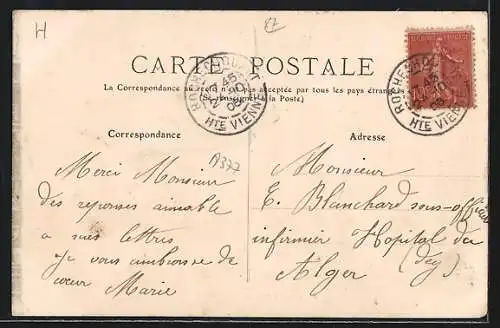 H
CARTE POSTALE
La Correspondance au recto n'est pas acceptée par tous les pays étrangers
(Se renseigner à la Poste)
ROCHECHOUART
HTE VIENNE
ROCHECHOUART
HTE VIENNE
Correspondance
A377
Merci Monsieur
des reponses aimable
a mes lettres
Je vous embrasse de
coeur Marie
Adresse
Monsieur
E. Blanchard sous-officier
infirmier Hopital du
Alger (dey)